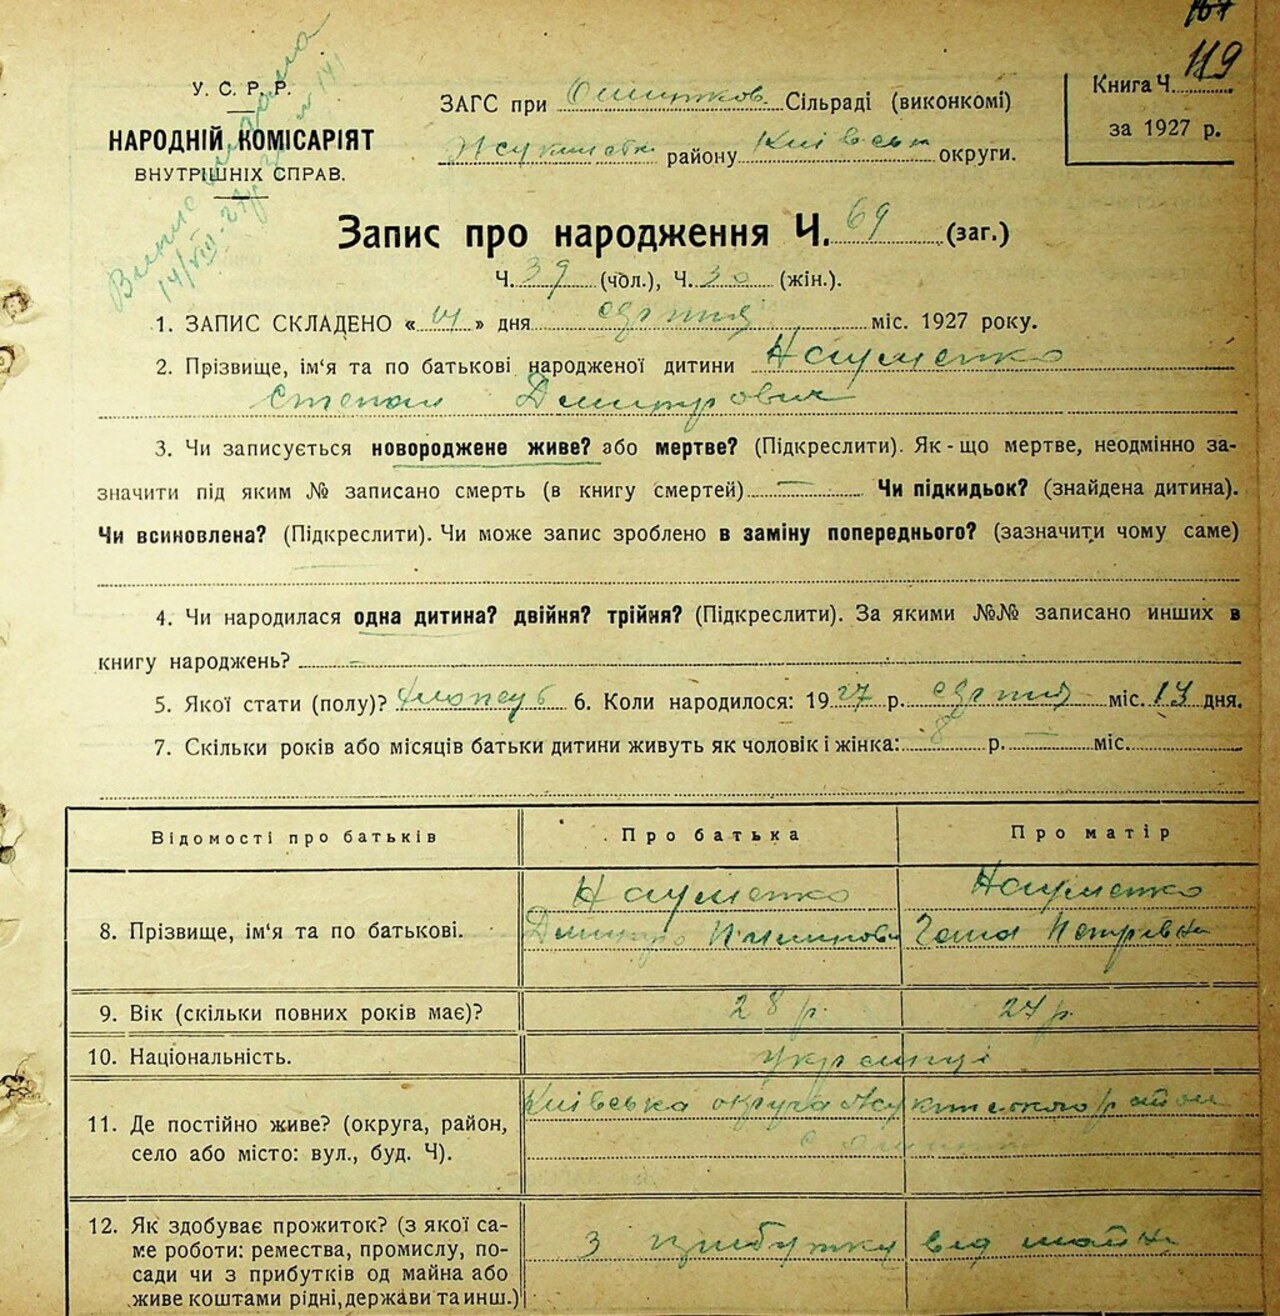 167
119
У. С. Р. Р.
НАРОДНІЙ КОМІСАРІЯТ
ВНУТРІШНІХ СПРАВ.
ЗАГС при Сільраді (виконкомі)
району Київськ округи.
Книга Ч.
за 1927 р.
14/VIII-27
Запис про народження Ч. 69 (заг.)
Ч. 39 (чол.), Ч. 30 (жін.).
1. ЗАПИС СКЛАДЕНО « 14 » дня серпня міс. 1927 року.
2. Прізвище, ім‘я та по батькові народженої дитини Науменко
Степан Дмитрович
3. Чи записується новороджене живе? або мертве? (Підкреслити). Як-що мертве, неодмінно за-
значити під яким № записано смерть (в книгу смертей) — Чи підкидьок? (знайдена дитина).
Чи всиновлена? (Підкреслити). Чи може запис зроблено в заміну попереднього? (зазначити чому саме)
4. Чи народилася одна дитина? двійня? трійня? (Підкреслити). За якими №№ записано инших в
книгу народжень? —
5. Якої стати (полу)? 6. Коли народилося: 1927 р. серпня міс. 13 дня.
7. Скільки років або місяців батьки дитини живуть як чоловік і жінка: 8 р. — міс.
Відомості про батьків Про батька Про матір
8. Прізвище, ім‘я та по батькові. Науменко Науменко
Дмитро Ганна Петрівна
9. Вік (скільки повних років має)? 28 р. 27 р.
10. Національність. українці
11. Де постійно живе? (округа, район, Київська округа район
село або місто: вул., буд. Ч).
12. Як здобуває прожиток? (з якої са- З прибутку від майна
ме роботи: ремества, промислу, по-
сади чи з прибутків од майна або
живе коштами рідні, держави та инш.)